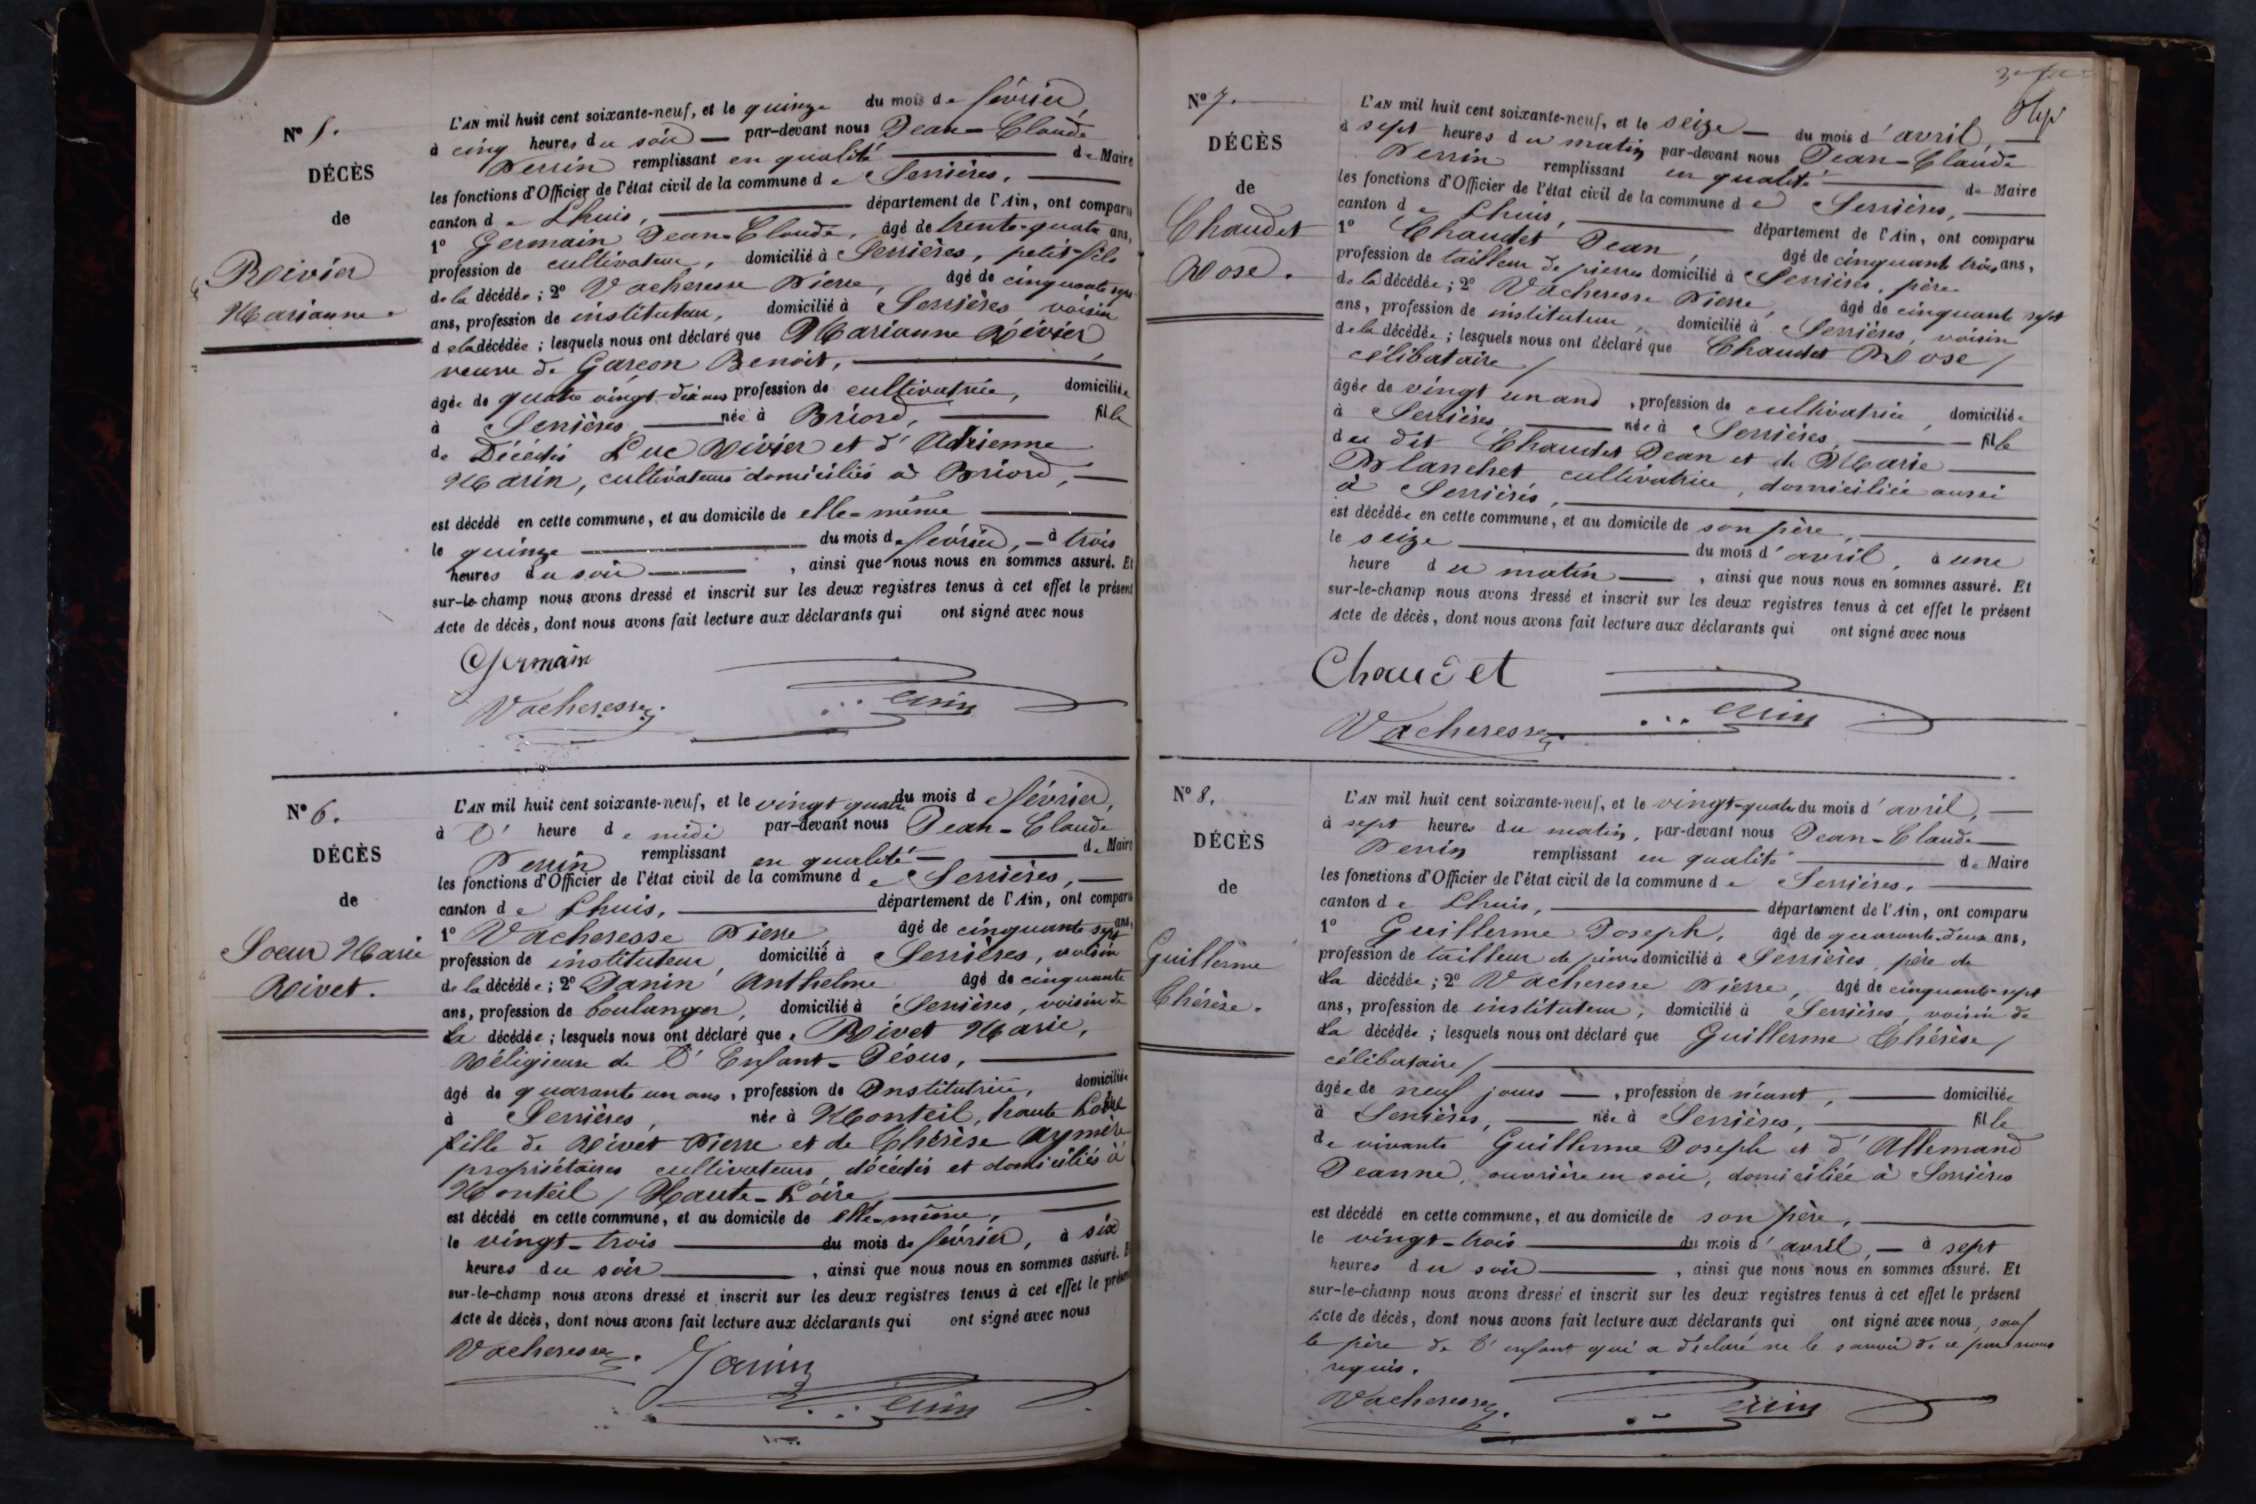 N° 5.
DÉCÈS
de
Rivier
Marianne
L'AN mil huit cent soixante-neuf, et le quinze du mois de février,
à cinq heures du soir par-devant nous Jean-Claude
Perrin remplissant en qualité de Maire
les fonctions d'Officier de l'état civil de la commune de Serrières,
canton de Lhuis, département de l'Ain, ont comparu
1° Germain Jean-Claude, âgé de trente-quatre ans,
profession de cultivateur, domicilié à Serrières, petit-fils
de la décédée ; 2° Vacheresse Pierre, âgé de cinquante sept
ans, profession de instituteur, domicilié à Serrières voisin
de la décédée ; lesquels nous ont déclaré que Marianne Rivier
veuve de Garçon Benoit,
âgée de quatre vingt-dix ans profession de cultivatrice, domiciliée
à Serrières née à Briord, fille
de Décédés Luc Rivier et d'Adrienne
Marin, cultivateurs domiciliés à Briord,
est décédé en cette commune, et au domicile de elle-même
le quinze du mois de février, à trois
heures du soir , ainsi que nous nous en sommes assuré. Et
sur-le-champ nous avons dressé et inscrit sur les deux registres tenus à cet effet le présent
Acte de décès, dont nous avons fait lecture aux déclarants qui ont signé avec nous
Germain
Vacheresse Perrin
N° 6.
DÉCÈS
de
Soeur Marie
Rivet.
L'AN mil huit cent soixante-neuf, et le vingt quatre du mois de février,
à l' heure de midi par-devant nous Jean-Claude
Perrin remplissant en qualité de Maire
les fonctions d'Officier de l'état civil de la commune de Serrières,
canton de Lhuis, département de l'Ain, ont comparu
1° Vacheresse Pierre, âgé de cinquante sept ans,
profession de instituteur, domicilié à Serrières, voisin
de la décédée ; 2° Janin Anthelme âgé de cinquante
ans, profession de boulanger, domicilié à Serrières, voisin de
la décédée ; lesquels nous ont déclaré que Rivet Marie,
Réligieuse de l'Enfant-Jésus,
âgé de quarante un ans, profession de Institutrice, domiciliée
à Serrières, née à Monteil, haute Loire
fille de Rivet Pierre et de Thérèse Aymère
propriétaires cultivateurs décédés et domiciliés à
Monteil / Haute-Loire
est décédé en cette commune, et au domicile de elle-même,
le vingt-trois du mois de février, à six
heures du soir , ainsi que nous nous en sommes assuré. Et
sur-le-champ nous avons dressé et inscrit sur les deux registres tenus à cet effet le présent
Acte de décès, dont nous avons fait lecture aux déclarants qui ont signé avec nous
Vacheresse Janin
Perrin
N° 7.
DÉCÈS
de
Chaudet
Rose.
L'AN mil huit cent soixante-neuf, et le seize du mois d'avril,
à sept heures du matin par-devant nous Jean-Claude
Perrin remplissant en qualité de Maire
les fonctions d'Officier de l'état civil de la commune de Serrières,
canton de Lhuis, département de l'Ain, ont comparu
1° Chaudet Jean, âgé de cinquante trois ans,
profession de tailleur de pierres domicilié à Serrières, père
de la décédée ; 2° Vacheresse Pierre, âgé de cinquante sept
ans, profession de instituteur, domicilié à Serrières, voisin
de la décédée ; lesquels nous ont déclaré que Chaudet Rose /
célibataire /
âgée de vingt un ans, profession de cultivatrice, domiciliée
à Serrières, née à Serrières, fille
du dit Chaudet Jean et de Marie
Blanchet cultivatrice, domiciliée aussi
à Serrières,
est décédée en cette commune, et au domicile de son père,
le seize du mois d'avril, à une
heure du matin , ainsi que nous nous en sommes assuré. Et
sur-le-champ nous avons dressé et inscrit sur les deux registres tenus à cet effet le présent
Acte de décès, dont nous avons fait lecture aux déclarants qui ont signé avec nous
Chaudet
Vacheresse Perrin
N° 8.
DÉCÈS
de
Guillerme
Thérèse.
L'AN mil huit cent soixante-neuf, et le vingt-quatre du mois d'avril,
à sept heures du matin, par-devant nous Jean-Claude
Perrin remplissant en qualité de Maire
les fonctions d'Officier de l'état civil de la commune de Serrières,
canton de Lhuis, département de l'Ain, ont comparu
1° Guillerme Joseph, âgé de quarante-deux ans,
profession de tailleur de pierres domicilié à Serrières, père de
la décédée ; 2° Vacheresse Pierre, âgé de cinquante-sept
ans, profession de instituteur, domicilié à Serrières, voisin de
la décédée ; lesquels nous ont déclaré que Guillerme Thérèse /
célibataire /
âgée de neuf jours , profession de néant, domiciliée
à Serrières, née à Serrières, fille
de vivants Guillerme Joseph et d'Allemand
Jeanne, ouvrière en soie, domiciliée à Serrières
est décédé en cette commune, et au domicile de son père,
le vingt-trois du mois d'avril, à sept
heures du soir , ainsi que nous nous en sommes assuré. Et
sur-le-champ nous avons dressé et inscrit sur les deux registres tenus à cet effet le présent
Acte de décès, dont nous avons fait lecture aux déclarants qui ont signé avec nous, sauf
le père de l'enfant qui a déclaré ne le savoir de ce par nous
requis.
Vacheresse Perrin